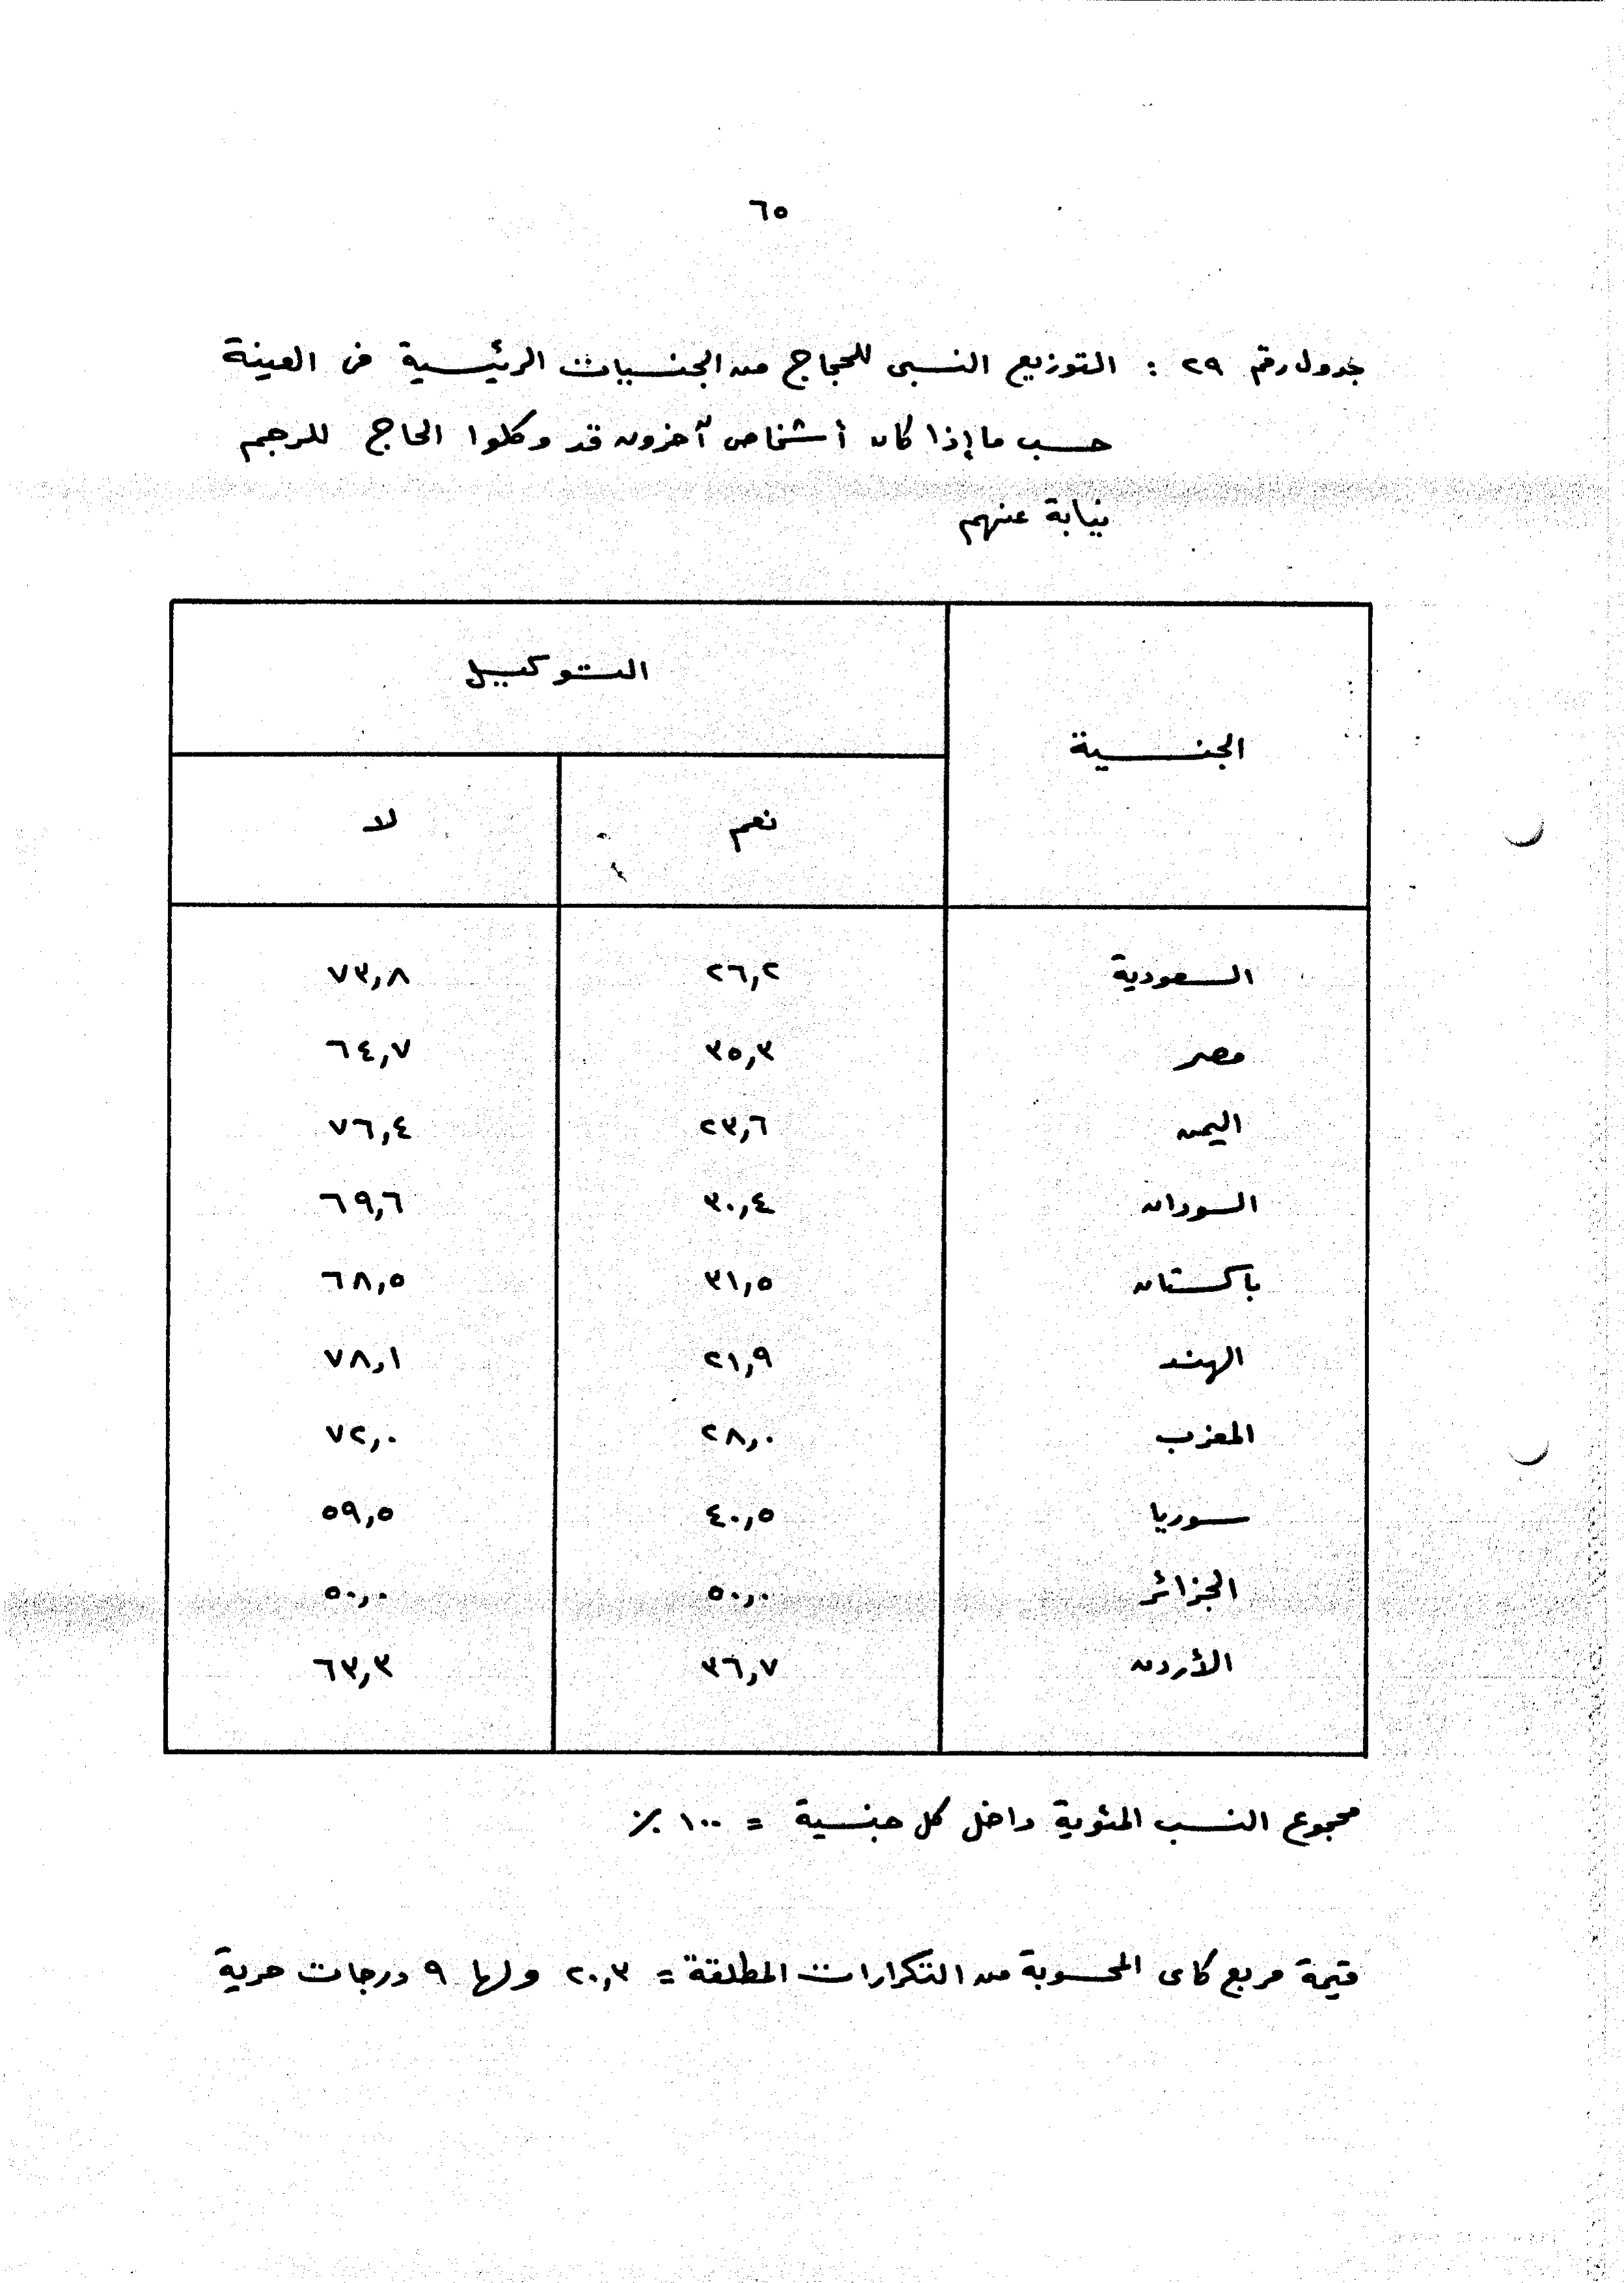 ٦٥
جدول رقم ٢٩ : التوزيع النسبى للحجاج من الجنسيات الرئيسية فى العينة
حسب ما إذا كان أشخاص آخرون قد وكلوا الحاج للرجم
نيابة عنهم
التوكيل
الجنسية
نعم لا
السعودية ٢٦,٢ ٧٣,٨
مصر ٣٥,٣ ٦٤,٧
اليمن ٢٣,٦ ٧٦,٤
السودان ٣٠,٤ ٦٩,٦
باكستان ٣١,٥ ٦٨,٥
الهند ٢١,٩ ٧٨,١
المغرب ٢٨,٠ ٧٢,٠
سوريا ٤٠,٥ ٥٩,٥
الجزائر ٥٠,٠ ٥٠,٠
الأردن ٣٦,٧ ٦٣,٣
مجموع النسب المئوية داخل كل جنسية = ١٠٠ ٪
قيمة مربع كاى المحسوبة من التكرارات المطلقة = ٢٠,٣ ولها ٩ درجات حرية